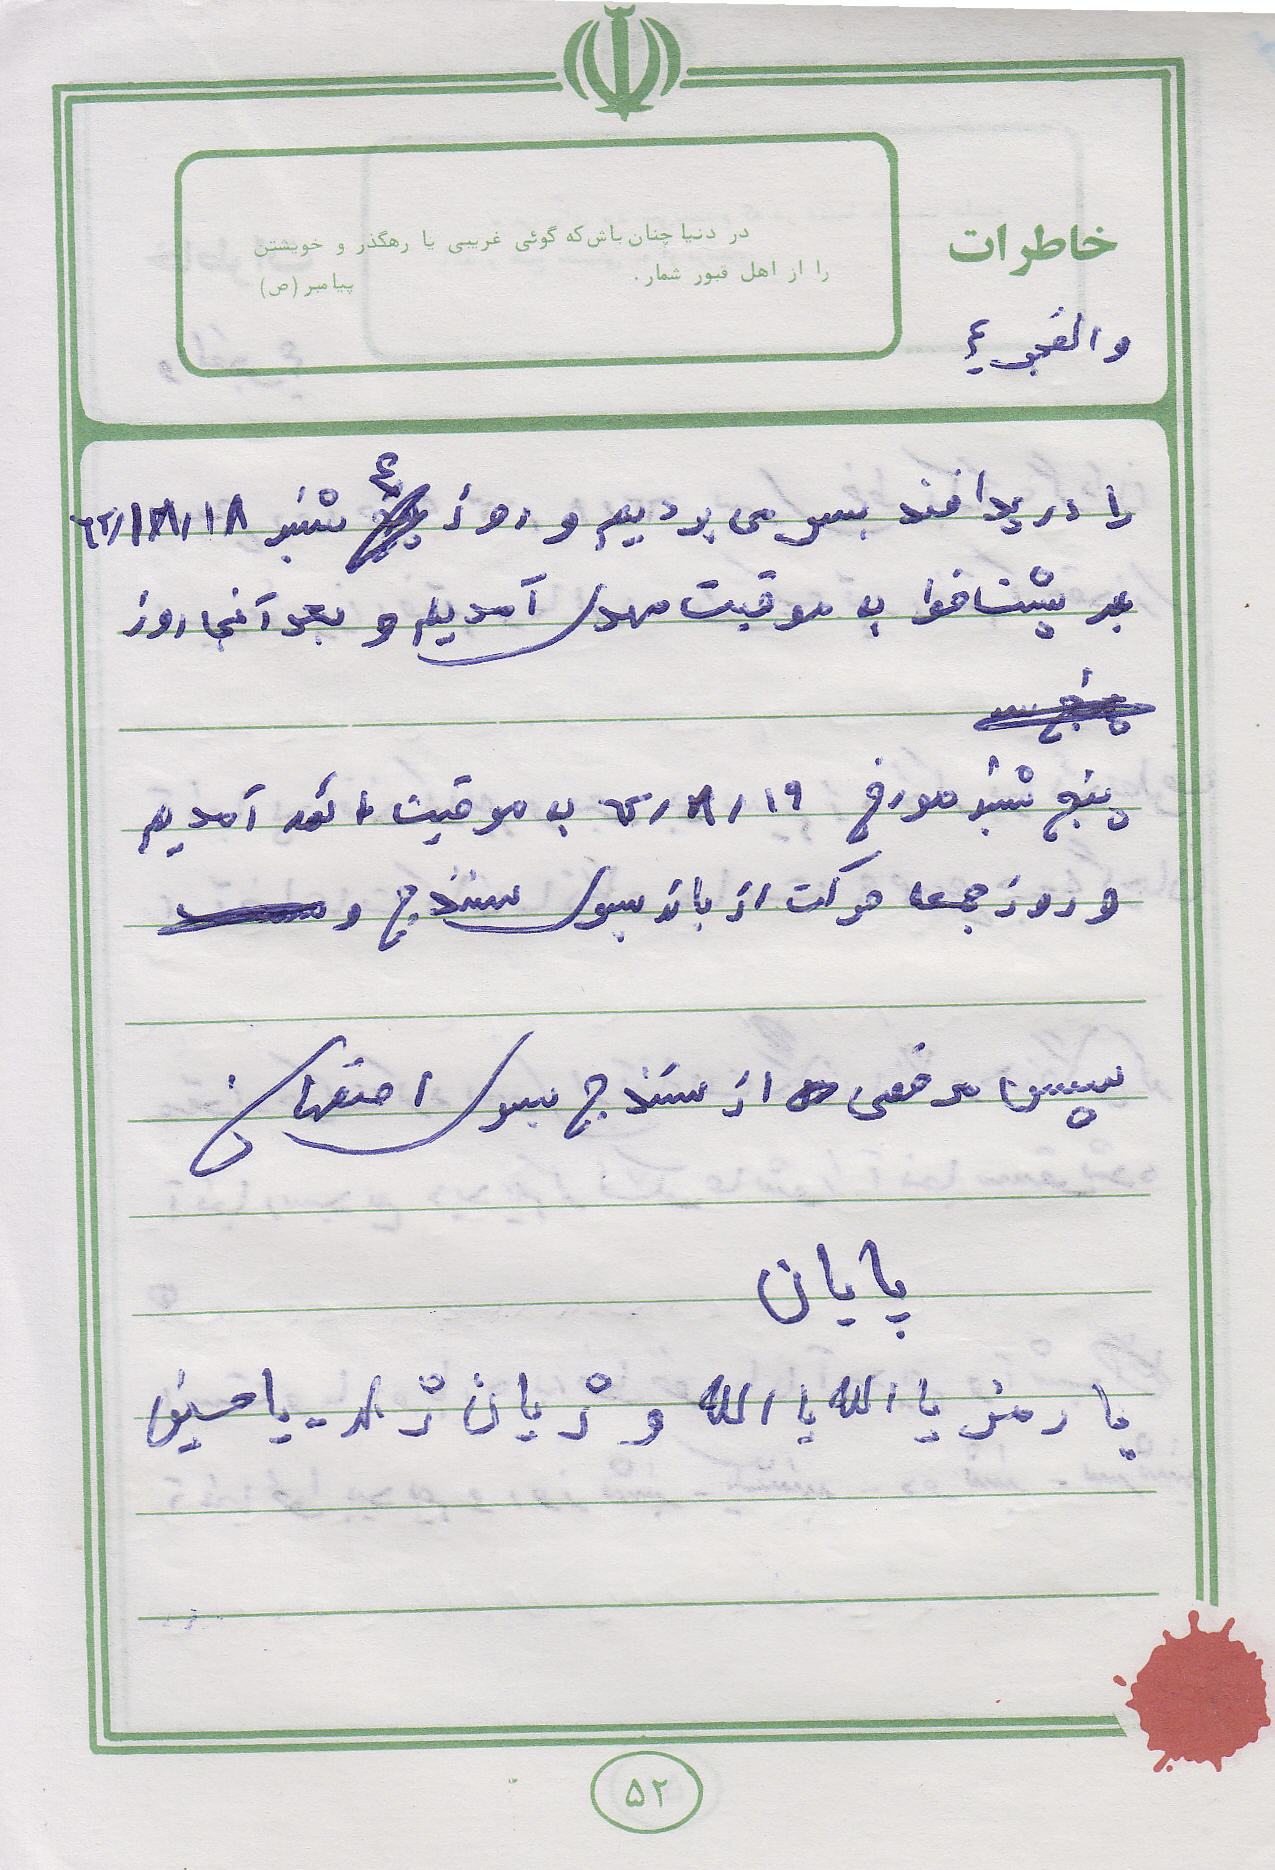 خاطرات
در دنیا چنان باش که گوئی غریبی یا رهگذر و خویشتن
را از اهل قبور شمار.
پیامبر (ص)
والفجر ٤
را در پدافند بسر می بردیم و روز ٤ شنبه ۶۲/۸/۱۸
به موقیت مهدی آمدیم و بعد آنجا روز
پنج
پنج شنبه مورخ ۶۲/۸/۱۹ به موقیت ائمه آمدیم
و روز جمعه حرکت از بانه بسوی سنندج و
سپس مرخصی از سنندج بسوی اصفهان
پایان
با رمز یا الله یا الله و یا حسین
۵۲